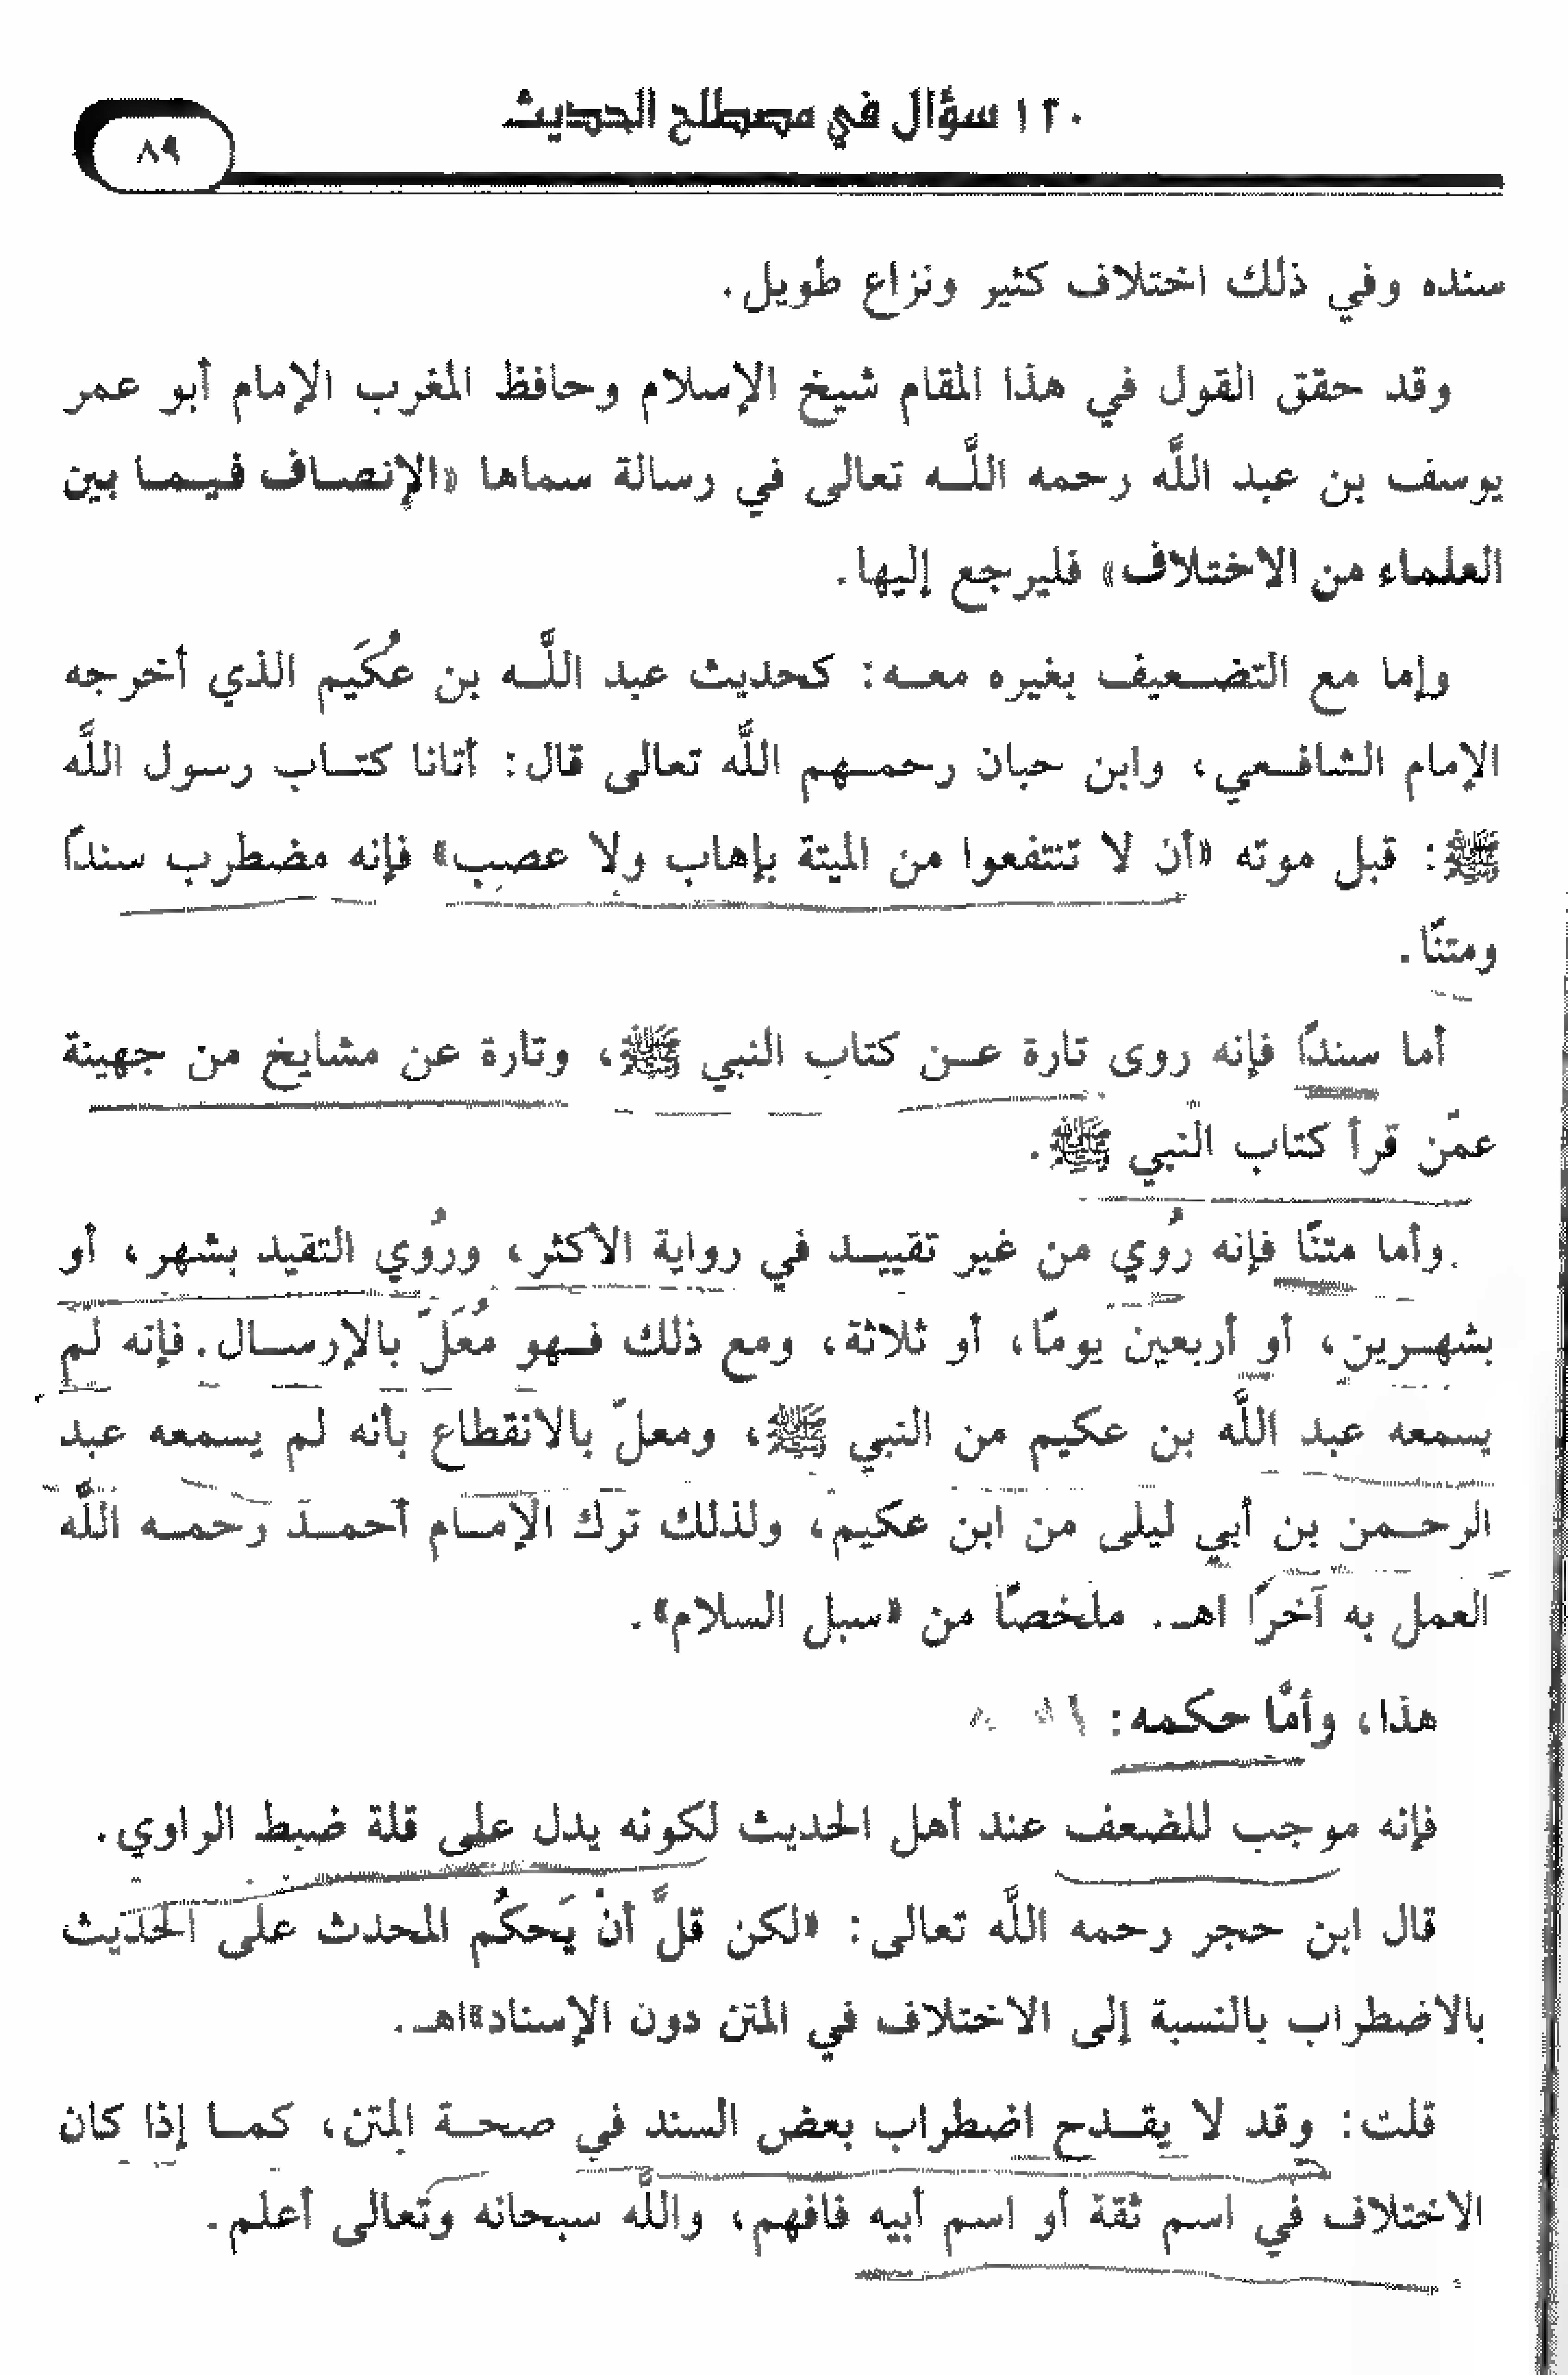 ١٢٠ سؤال في مصطلح الحديث
٨٩
سنده وفي ذلك اختلاف كثير ونزاع طويل.
وقد حقق القول في هذا المقام شيخ الإسلام وحافظ المغرب الإمام أبو عمر
يوسف بن عبد اللَّه رحمه اللَّـه تعالى في رسالة سماها «الإنصـاف فـيـمـا بين
العلماء من الاختلاف» فليرجع إليها.
وإما مع التضـعيف بغيره معـه: كحديث عبد اللَّـه بن عُكَيم الذي أخرجه
الإمام الشافـعي، وابن حبان رحمـهم اللَّه تعالى قال: أتانا كتـاب رسول اللَّه
ﷺ: قبل موته «أن لا تنتفعوا من الميتة بإهاب ولا عصب» فإنه مضطرب سنداً
ومتنًا.
أما سندًا فإنه روى تارة عـن كتاب النبي ﷺ، وتارة عن مشايخ من جهينة
عمّن قرأ كتاب النبي ﷺ.
وأما متنًا فإنه رُوي من غير تقييـد في رواية الأكثر، ورُوي التقيد بشهر، أو
بشهـرين، أو أربعين يومًا، أو ثلاثة، ومع ذلك فـهو مُعَلّ بالإرسـال. فإنه لم
يسمعه عبد اللَّه بن عكيم من النبي ﷺ، ومعلّ بالانقطاع بأنه لم يسمعه عبد
الرحـمن بن أبي ليلى من ابن عكيم، ولذلك ترك الإمـام أحمـد رحمـه اللَّه
العمل به آخرًا اهـ. ملخصًا من «سبل السلام».
هذا، وأمَّا حكمه:
فإنه موجب للضعف عند أهل الحديث لكونه يدل على قلة ضبط الراوي.
قال ابن حجر رحمه اللَّه تعالى: «لكن قلَّ أنْ يَحكُم المحدث على الحديث
بالاضطراب بالنسبة إلى الاختلاف في المتن دون الإسناد»اهـ.
قلت: وقد لا يقـدح اضطراب بعض السند في صحـة المتن، كمـا إذا كان
الاختلاف في اسم ثقة أو اسم أبيه فافهم، واللَّه سبحانه وتعالى أعلم.